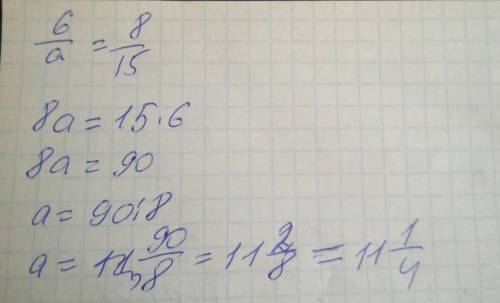 6/a = 8/15
8a = 15·6
8a = 90
a = 90:8
a = 90/8 = 11 2/8 = 11 1/4